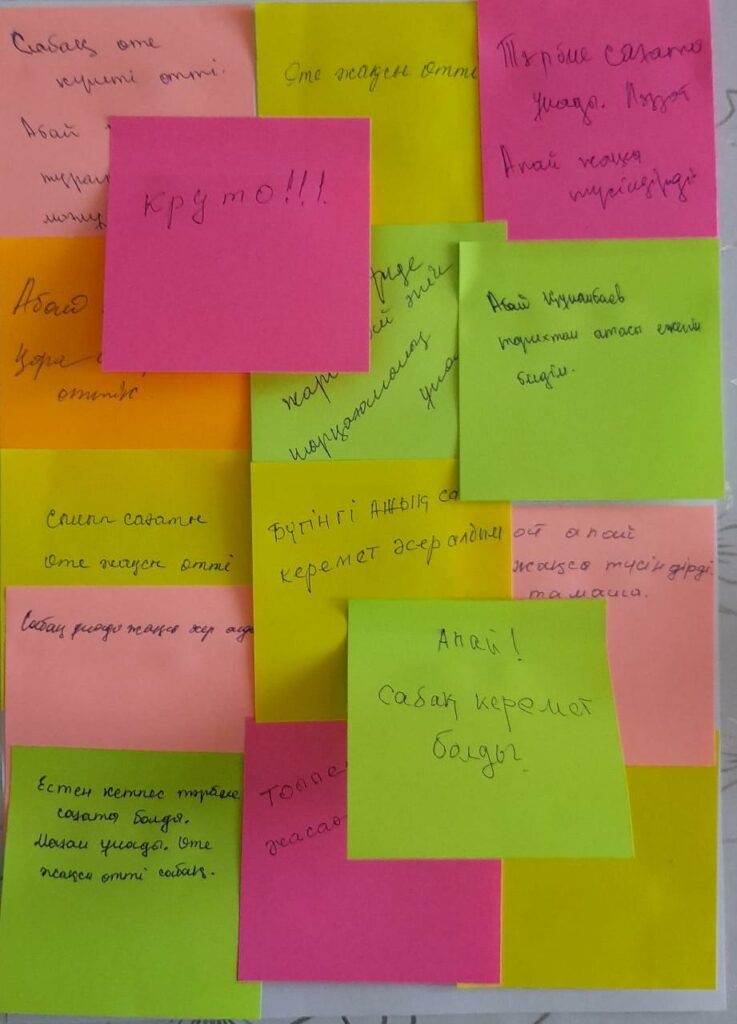 Сабақ өте
күшті өтті.
Абай
Өте жақсы өтті
Тәрбие сағаты
ұнады. Ләззат
Апай жақсы
түсіндірді
Круто!!!
Абай
Қара
өттік
жүрде
шорқағаланың
Абай Құнанбаев
тарихтан атасы екенін
білдім.
Сынып сағаты
Өте жақсы өтті
Бүгінгі ашық са
керемет әсер алдым
ой апай
жақсы түсіндірді.
тамаша.
Сабақ ұнады жақсы әсер алды
Апай!
Сабақ керемет
болды
Естен кетпес тәрбие
сағаты болды.
Маған ұнады. Өте
жақсы өтті сабақ.
Топпе
жасаа